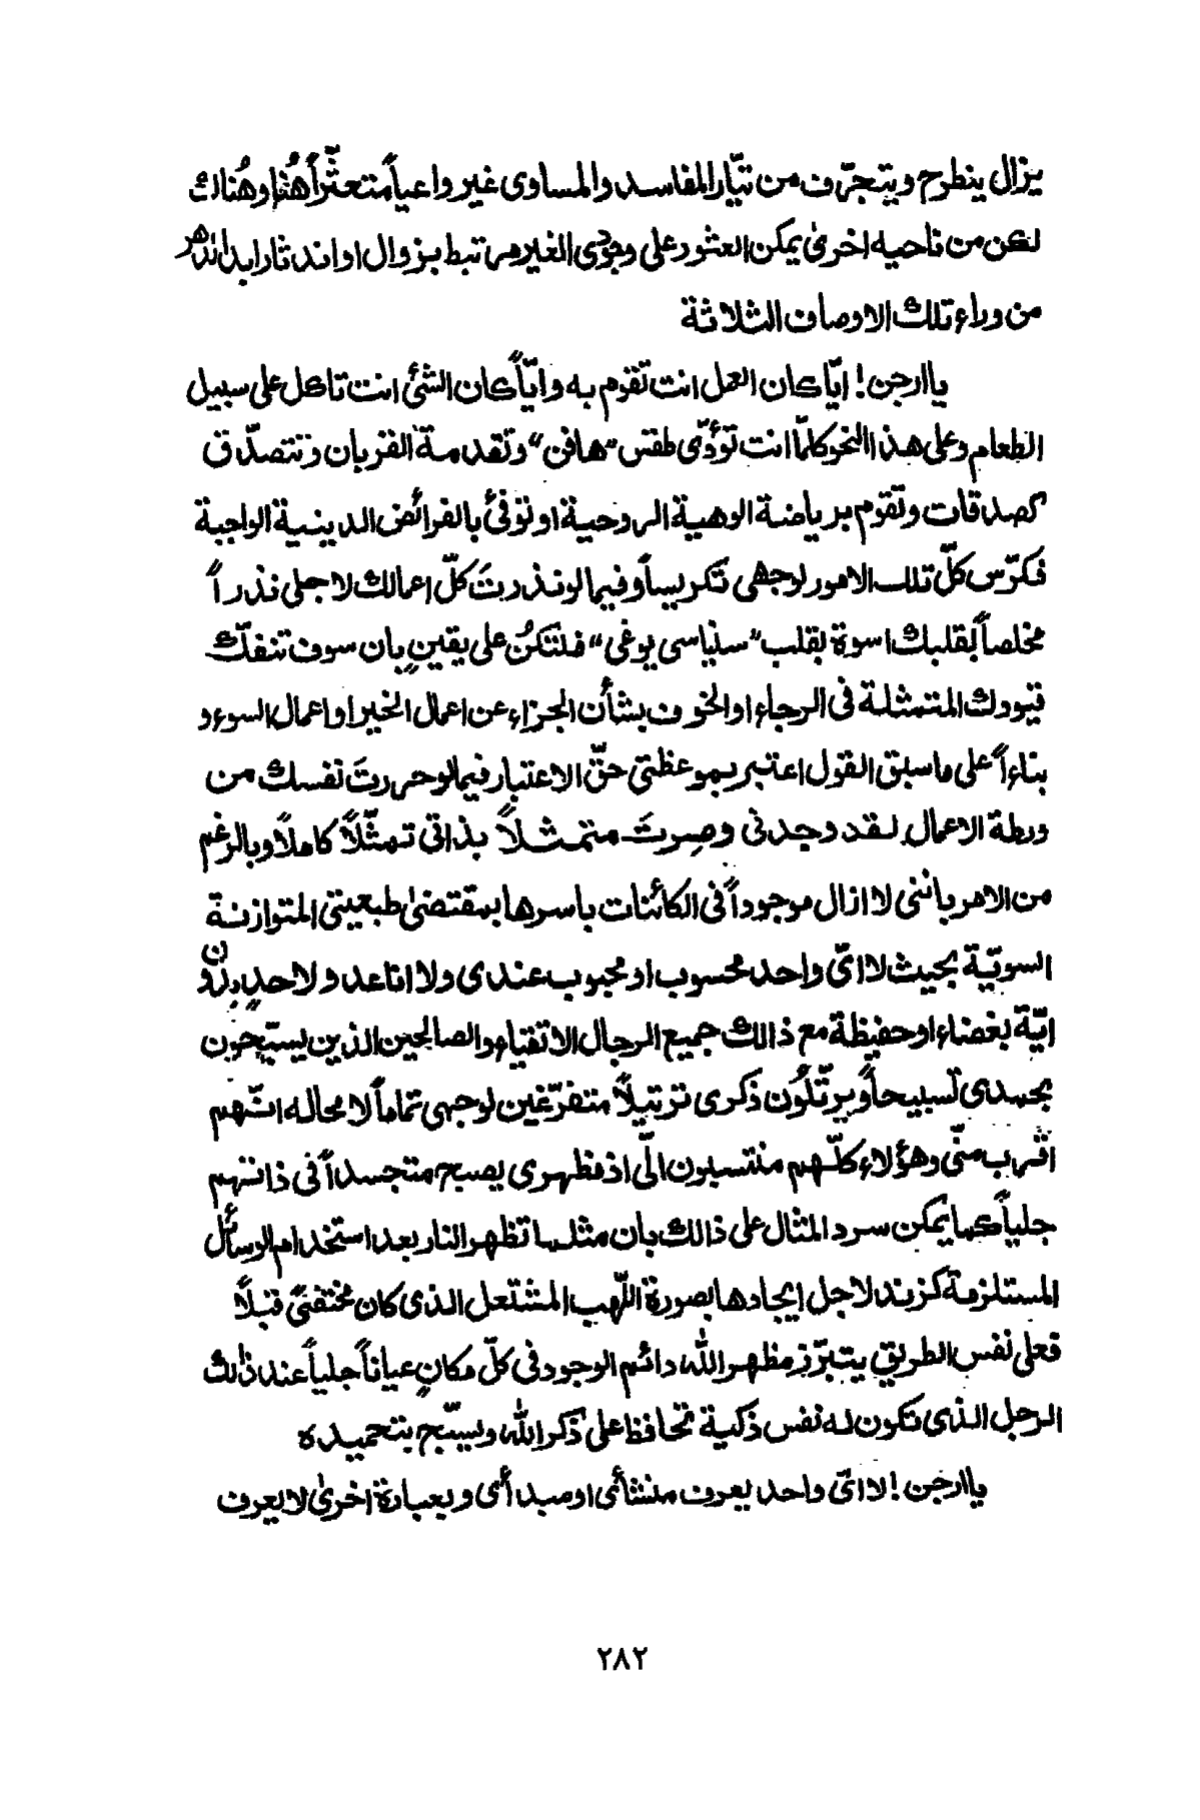 يزال ينطرح ويتجرّف من تيّار المفاسد والمساوى غير واعياً متعثّراً هُنا وهُنالك
لكن من ناحيه اخرىٰ يمكن العثور على وجودى الغير مرتبط بزوال او اندثار ابد الدهر
من وراء تلك الاوصاف الثلاثة
ياارجن! ايّا كان العمل انت تقوم به وايّاً كان الشئ انت تاكل على سبيل
الطعام وعلى هذا النحو كلمّا انت تؤدّى طقس "هافن" وتقدمة القربان وتتصدّق
كصدقات وتقوم برياضة الوهبية الروحية او توفئ بالفرائض الدينية الواجبة
فكرّس كلّ تلك الامور لوجهى تكريساً وفيما لو نذرتَ كلّ اعمالك لاجلى نذراً
مخلصاً بقلبك اسوة بقلب "سنياسى يوغى" فلتكنُ على يقينٍ بان سوف تنفكّ
قيودك المتمثلة فى الرجاء او الخوف بشأن الجزاء عن اعمال الخير او اعمال السوء و
بناءاً على ما سبق القول اعتبر بموعظتى حقّ الاعتبار فيما لو حررتَ نفسك من
ورطة الاعمال لقد وجدنى وصِرتَ متمثلاً بذاتى تمثّلاً كاملاً وبالرغم
من الامر باننى لا ازال موجوداً فى الكائنات باسرها بمقتضىٰ طبعيتى المتوازنة
السويّة بحيث لا اىّ واحد محسوب او محبوب عندى ولا اتاعد ولا حدٍ بدون
ايّة بغضاء او حفيظة مع ذالك جميع الرجال الاتقياء والصالحين الذين يسبّحون
بحمدى تسبيحاً ويرتّلُون ذكرى ترتيلاً متفرّغين لوجهى تماماً لا محاله انّهم
اقرب منّى وهؤلاء كلّهم منتسبون الىّ اذ مظهرى يصبح متجسداً فى ذاتتهم
جلياً كما يمكن سرد المثال على ذالك بان مثلما تظهر النار بعد استخدام الوسائل
المستلزمة كزند لاجل ايجادها بصورة اللّهب المشتعل الذى كان مختفىً قبلاً
فعلى نفس الطريق يتبرّز مظهر الله دائم الوجود فى كلّ مكانٍ عياناً جلياً عند ذالك
الرجل الذى تكون له نفس ذكية تحافظ على ذكر الله ويسبّح بتحميده
ياارجن! لا اىّ واحد يعرف منشائى او مبدأى وبعبارة اخرىٰ لا يعرف
٢٨٢